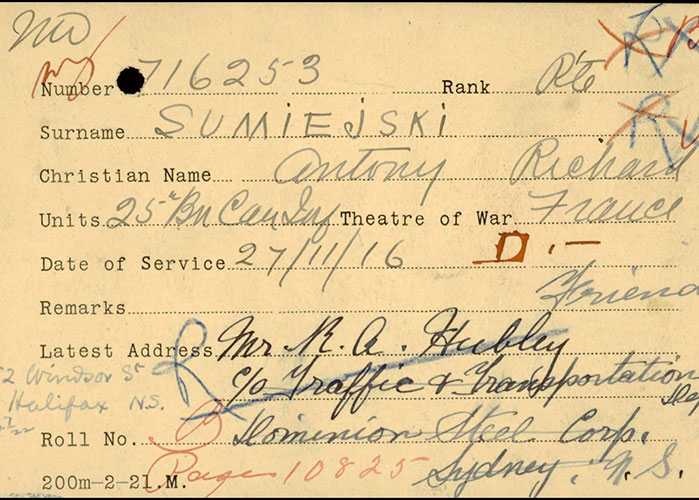 Number 716253 Rank Pte
Surname SUMIEJSKI
Christian Name Antony Richard
Units 25th Bn Can Inf Theatre of War France
Date of Service 27/11/16 D.—
Remarks Friend
Latest Address Mr. R. A. Hubley
c/o Traffic & Transportation
2 Windsor St
Halifax N.S.
Roll No. B Dominion Steel Corp.
Page 10825 Sydney, N.S.
200m-2-21.M.